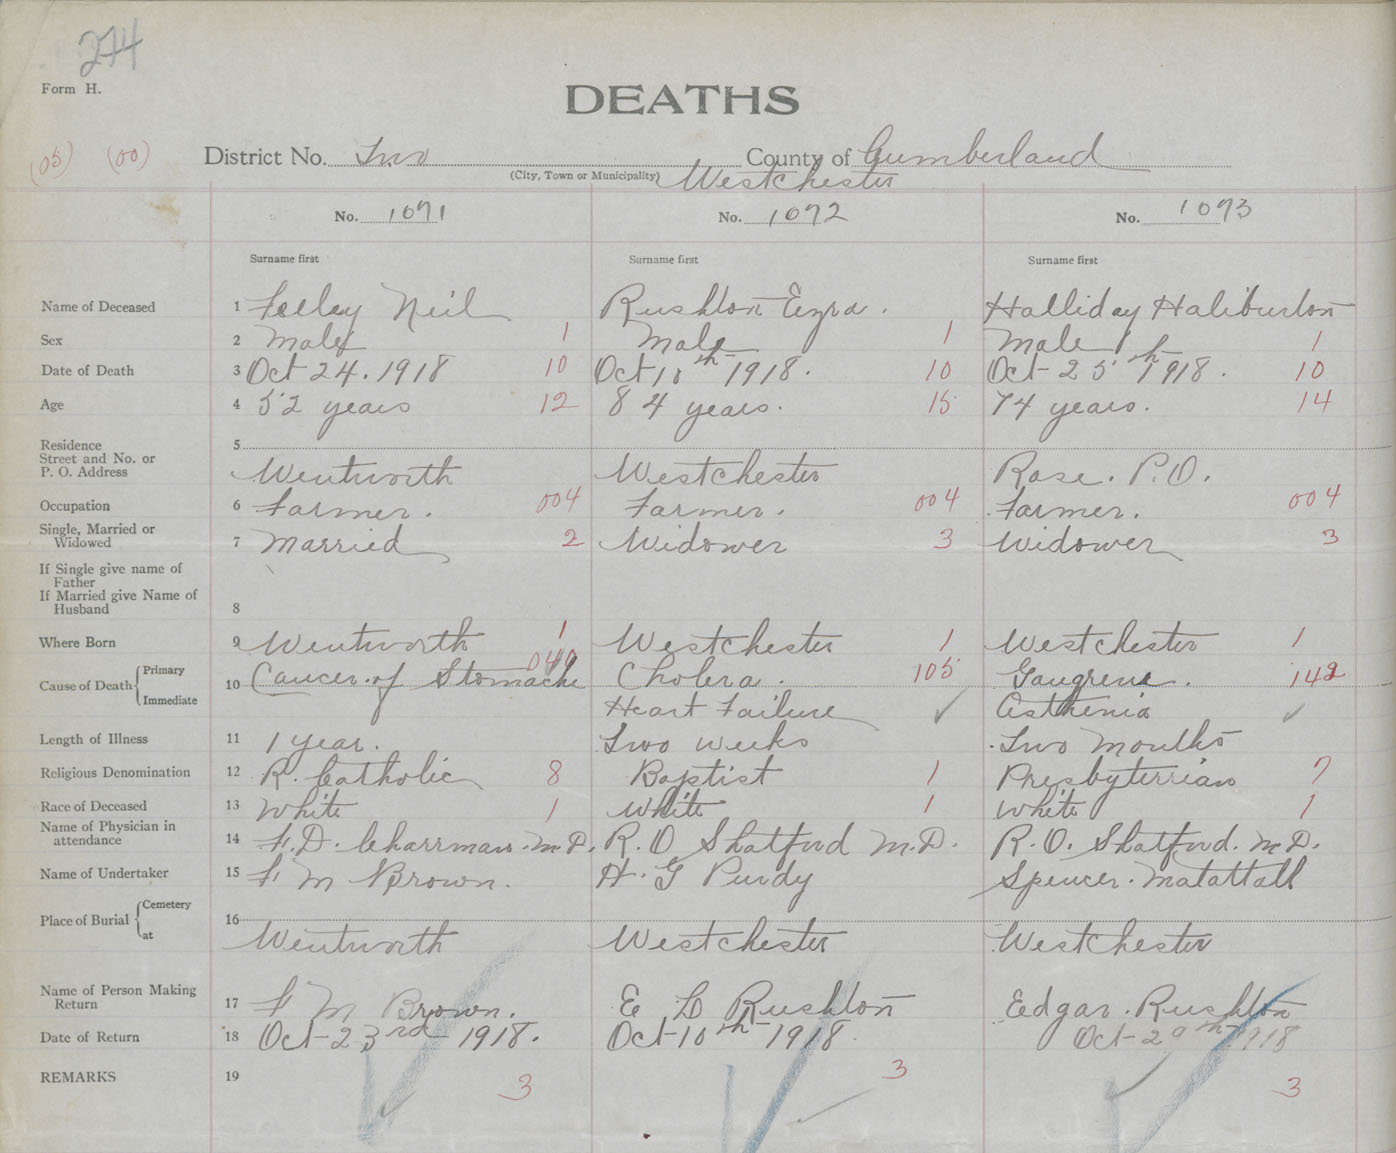 274
Form H.
DEATHS
(05) (00) District No. Two County of Cumberland
(City, Town or Municipality) Westchester
No. 1071 No. 1072 No. 1073
Surname first Surname first Surname first
Name of Deceased 1 Felley Neil Rushton Ezra. Halliday Haliburton
Sex 2 Male 1 Male 1 Male 1
Date of Death 3 Oct 24. 1918 10 Oct 10th 1918. 10 Oct-25th 1918. 10
Age 4 52 years 12 84 years. 15 74 years. 14
Residence
Street and No. or
P. O. Address 5 Wentworth Westchester Rose. P.O.
Occupation 6 Farmer. 004 Farmer. 004 Farmer. 004
Single, Married or
Widowed 7 Married 2 Widower 3 Widower 3
If Single give name of
Father
If Married give Name of
Husband 8
Where Born 9 Wentworth 1 Westchester 1 Westchester 1
Cause of Death Primary 10 Cancer of Stomache Cholera. 105 Gangrene. 142
Immediate Heart Failure Asthenia
Length of Illness 11 1 year. Two weeks Two Months
Religious Denomination 12 R. Catholic 8 Baptist 1 Presbyterrian 7
Race of Deceased 13 White 1 White 1 White 1
Name of Physician in
attendance 14 F. D. Charrman. M.D. R. O Shatford M.D. R. O. Shatford. M.D.
Name of Undertaker 15 F M Brown. H. G Purdy Spencer. Matattall
Place of Burial Cemetery 16
at Wentworth Westchester Westchester
Name of Person Making
Return 17 F M Brown. E D Rushton Eedgar. Rushton
Date of Return 18 Oct-23rd-1918. Oct-10th-1918. Oct-29th-1918
REMARKS 19 3 3 3